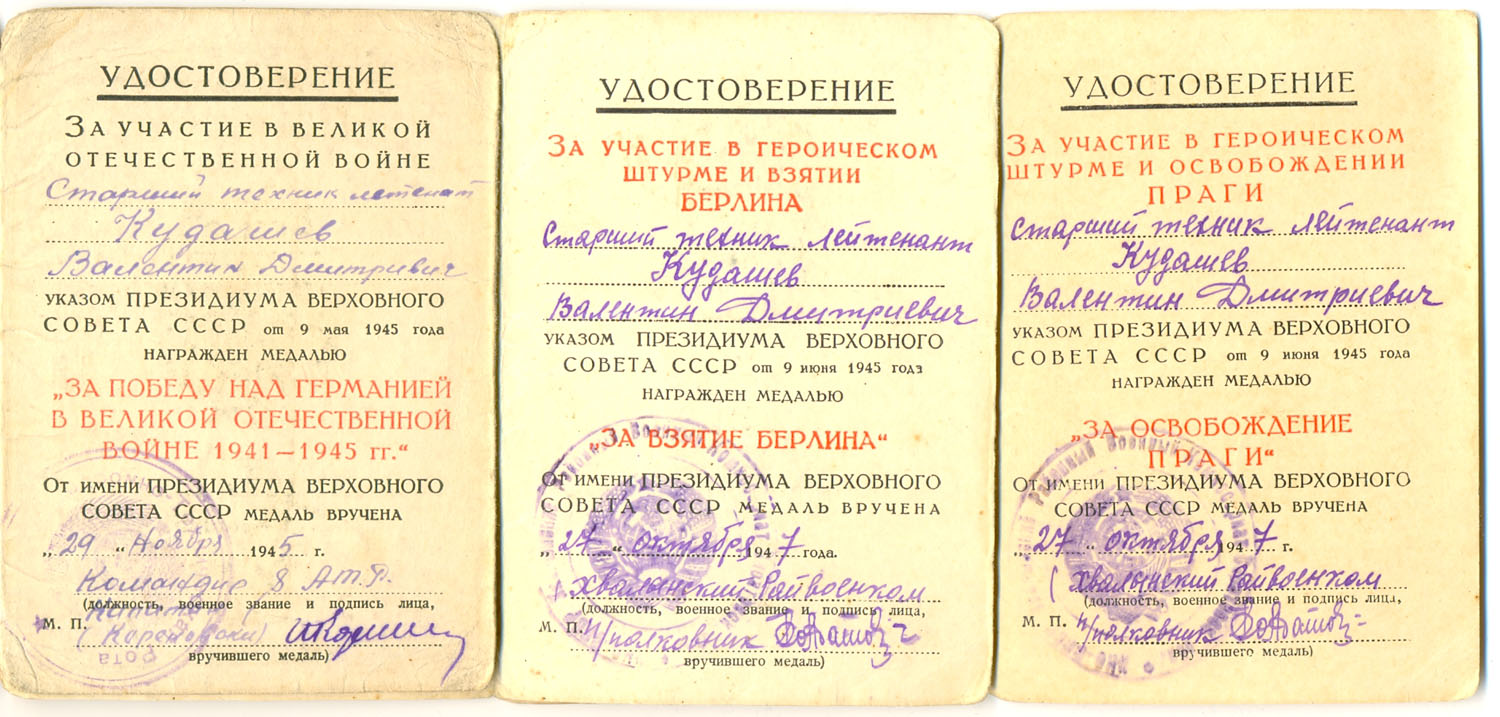 УДОСТОВЕРЕНИЕ
ЗА УЧАСТИЕ В ВЕЛИКОЙ
ОТЕЧЕСТВЕННОЙ ВОЙНЕ
Старший техник летенант
Кудашев
Валентин Дмитревич
УКАЗОМ ПРЕЗИДИУМА ВЕРХОВНОГО
СОВЕТА СССР от 9 мая 1945 года
НАГРАЖДЕН МЕДАЛЬЮ
„ЗА ПОБЕДУ НАД ГЕРМАНИЕЙ
В ВЕЛИКОЙ ОТЕЧЕСТВЕННОЙ
ВОЙНЕ 1941—1945 гг.“
ОТ ИМЕНИ ПРЕЗИДИУМА ВЕРХОВНОГО
СОВЕТА СССР МЕДАЛЬ ВРУЧЕНА
„29“ ноября 1945 г.
Командир 8
(должность, военное звание и подпись лица,
М. П.
вручившего медаль)
Рота
УДОСТОВЕРЕНИЕ
ЗА УЧАСТИЕ В ГЕРОИЧЕСКОМ
ШТУРМЕ И ВЗЯТИИ
БЕРЛИНА
Старший техник лейтенант
Кудашев
Валентин Дмитриевич
УКАЗОМ ПРЕЗИДИУМА ВЕРХОВНОГО
СОВЕТА СССР от 9 июня 1945 года
НАГРАЖДЕН МЕДАЛЬЮ
„ЗА ВЗЯТИЕ БЕРЛИНА“
ОТ ИМЕНИ ПРЕЗИДИУМА ВЕРХОВНОГО
СОВЕТА СССР МЕДАЛЬ ВРУЧЕНА
„27“ октября 1947 года.
Хвалынский Райвоенком
(должность, военное звание и подпись лица,
М. П. п/полковник
вручившего медаль)
УДОСТОВЕРЕНИЕ
ЗА УЧАСТИЕ В ГЕРОИЧЕСКОМ
ШТУРМЕ И ОСВОБОЖДЕНИИ
ПРАГИ
Старший техник лейтенант
Кудашев
Валентин Дмитриевич
УКАЗОМ ПРЕЗИДИУМА ВЕРХОВНОГО
СОВЕТА СССР от 9 июня 1945 года
НАГРАЖДЕН МЕДАЛЬЮ
„ЗА ОСВОБОЖДЕНИЕ
ПРАГИ“
ОТ ИМЕНИ ПРЕЗИДИУМА ВЕРХОВНОГО
СОВЕТА СССР МЕДАЛЬ ВРУЧЕНА
„27“ октября 1947 г.
Хвалынский Райвоенком
(должность, военное звание и подпись лица,
М. П. п/полковник
вручившего медаль)